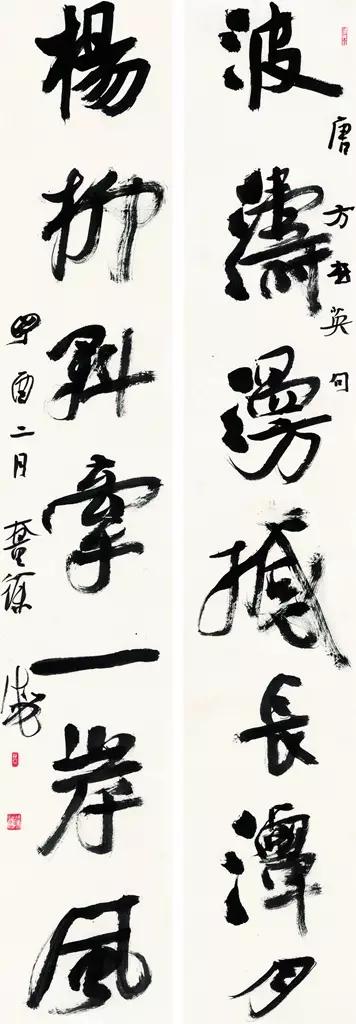 波濤漫撼長潭月
唐方玄英句
楊柳斜牽一岸風
酉二月